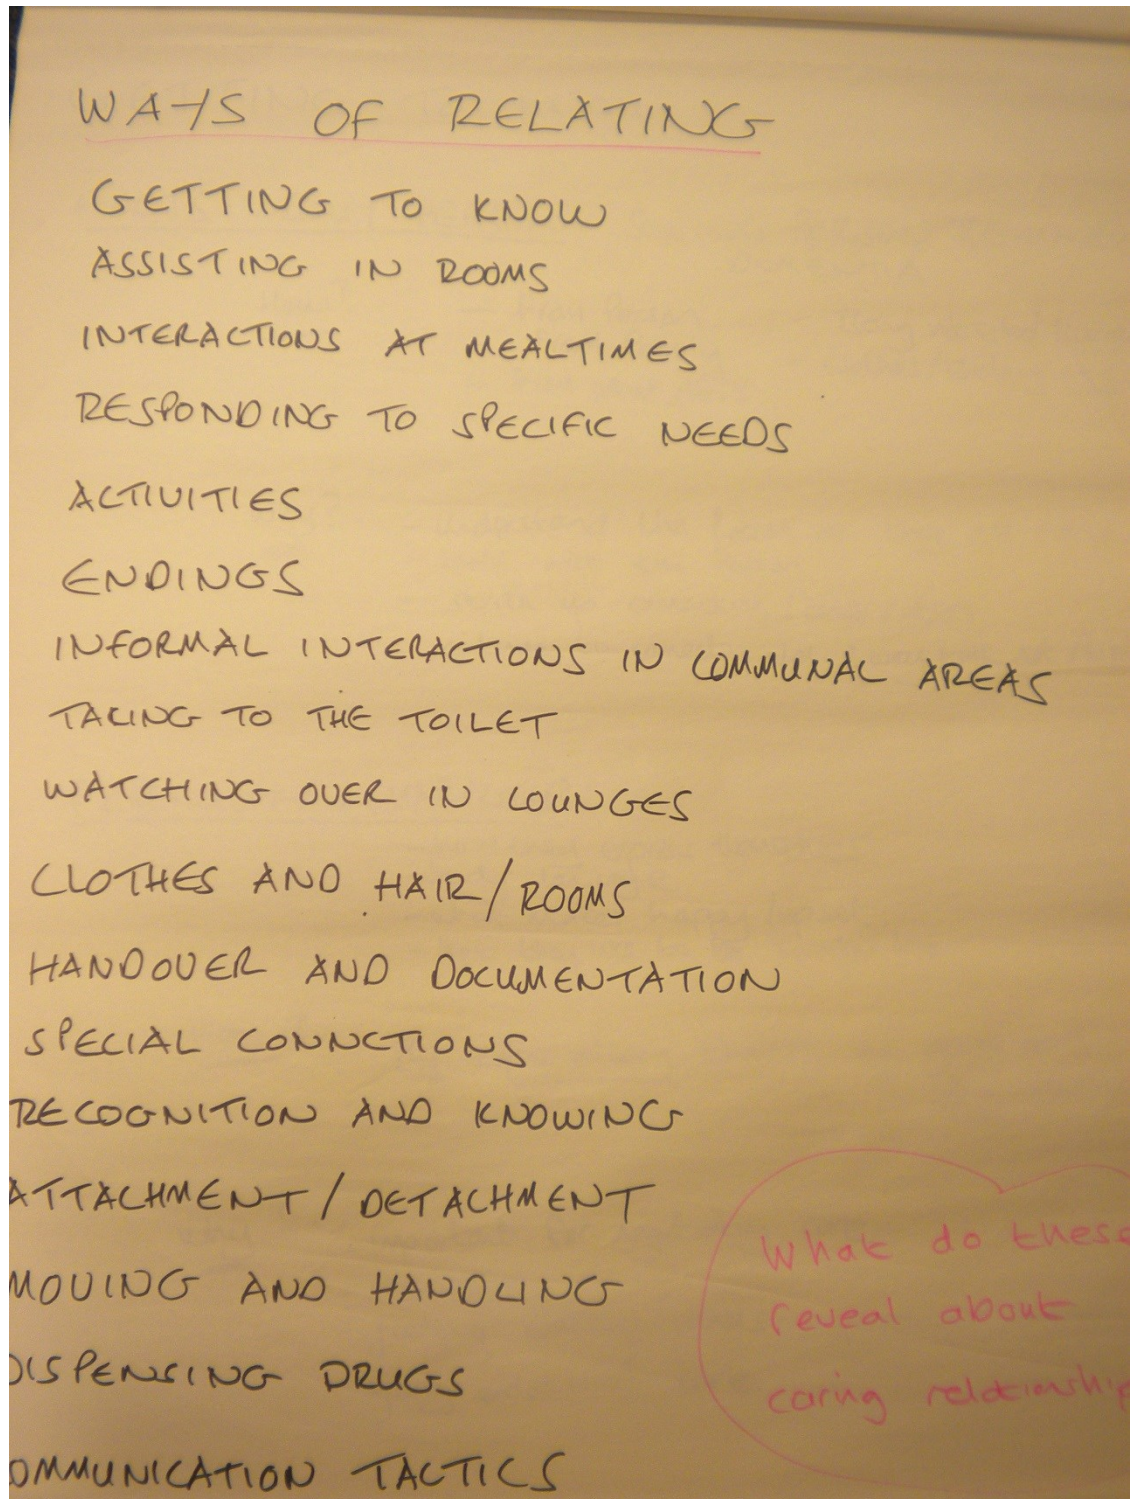 WAYS OF RELATING
GETTING TO KNOW
ASSISTING IN ROOMS
INTERACTIONS AT MEALTIMES
RESPONDING TO SPECIFIC NEEDS
ACTIVITIES
ENDINGS
INFORMAL INTERACTIONS IN COMMUNAL AREAS
TAKING TO THE TOILET
WATCHING OVER IN LOUNGES
CLOTHES AND HAIR/ROOMS
HANDOVER AND DOCUMENTATION
SPECIAL CONNCTIONS
RECOGNITION AND KNOWING
ATTACHMENT/DETACHMENT
MOVING AND HANDLING
DISPENSING DRUGS
OMMUNICATION TACTICS
What do these
reveal about
caring relationship